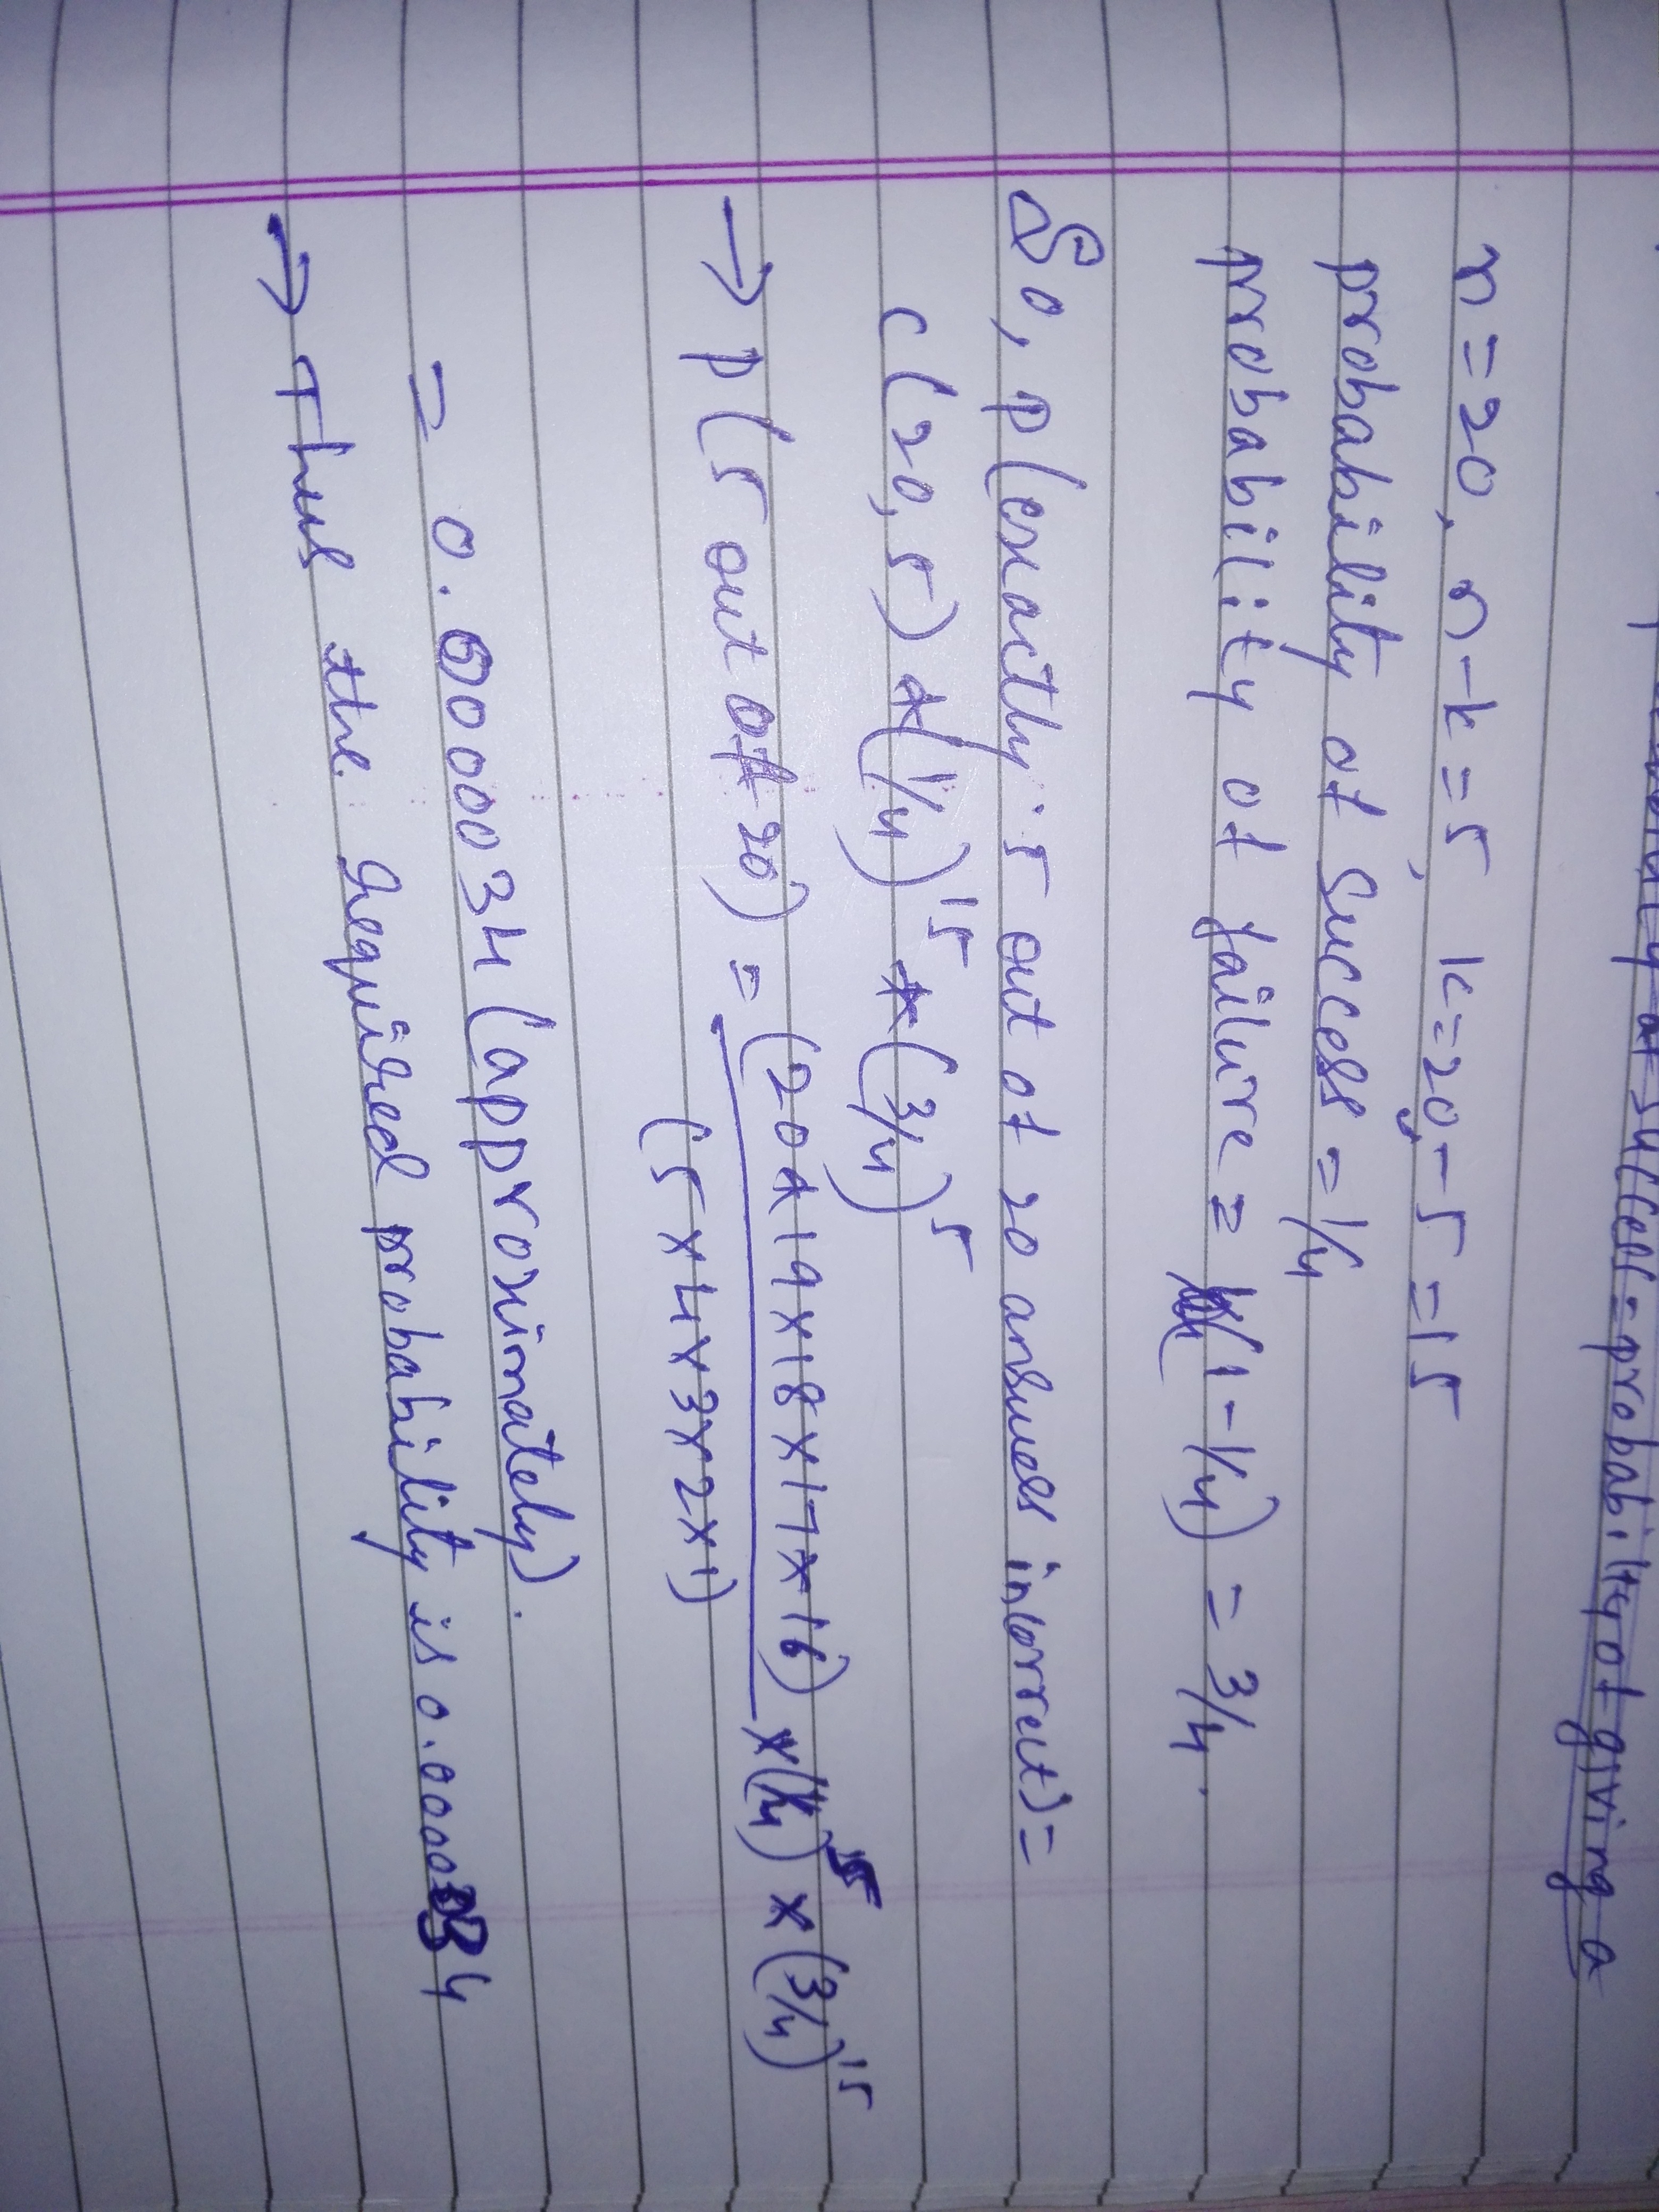 probability of success = probability of giving a
n = 20, n-k = 5, k = 20 - 5 = 15
probability of success = 1/4
probability of failure = (1 - 1/4) = 3/4.
So, p (exactly 5 out of 20 answers incorrect) =
c (20, 5) * (1/4)^15 * (3/4)^5
→ p (5 out of 20) = (20 x 19 x 18 x 17 x 16) x (1/4)^5 x (3/4)^15
(5 x 4 x 3 x 2 x 1)
= 0.0000034 (approximately).
→ Thus the required probability is 0.0000034